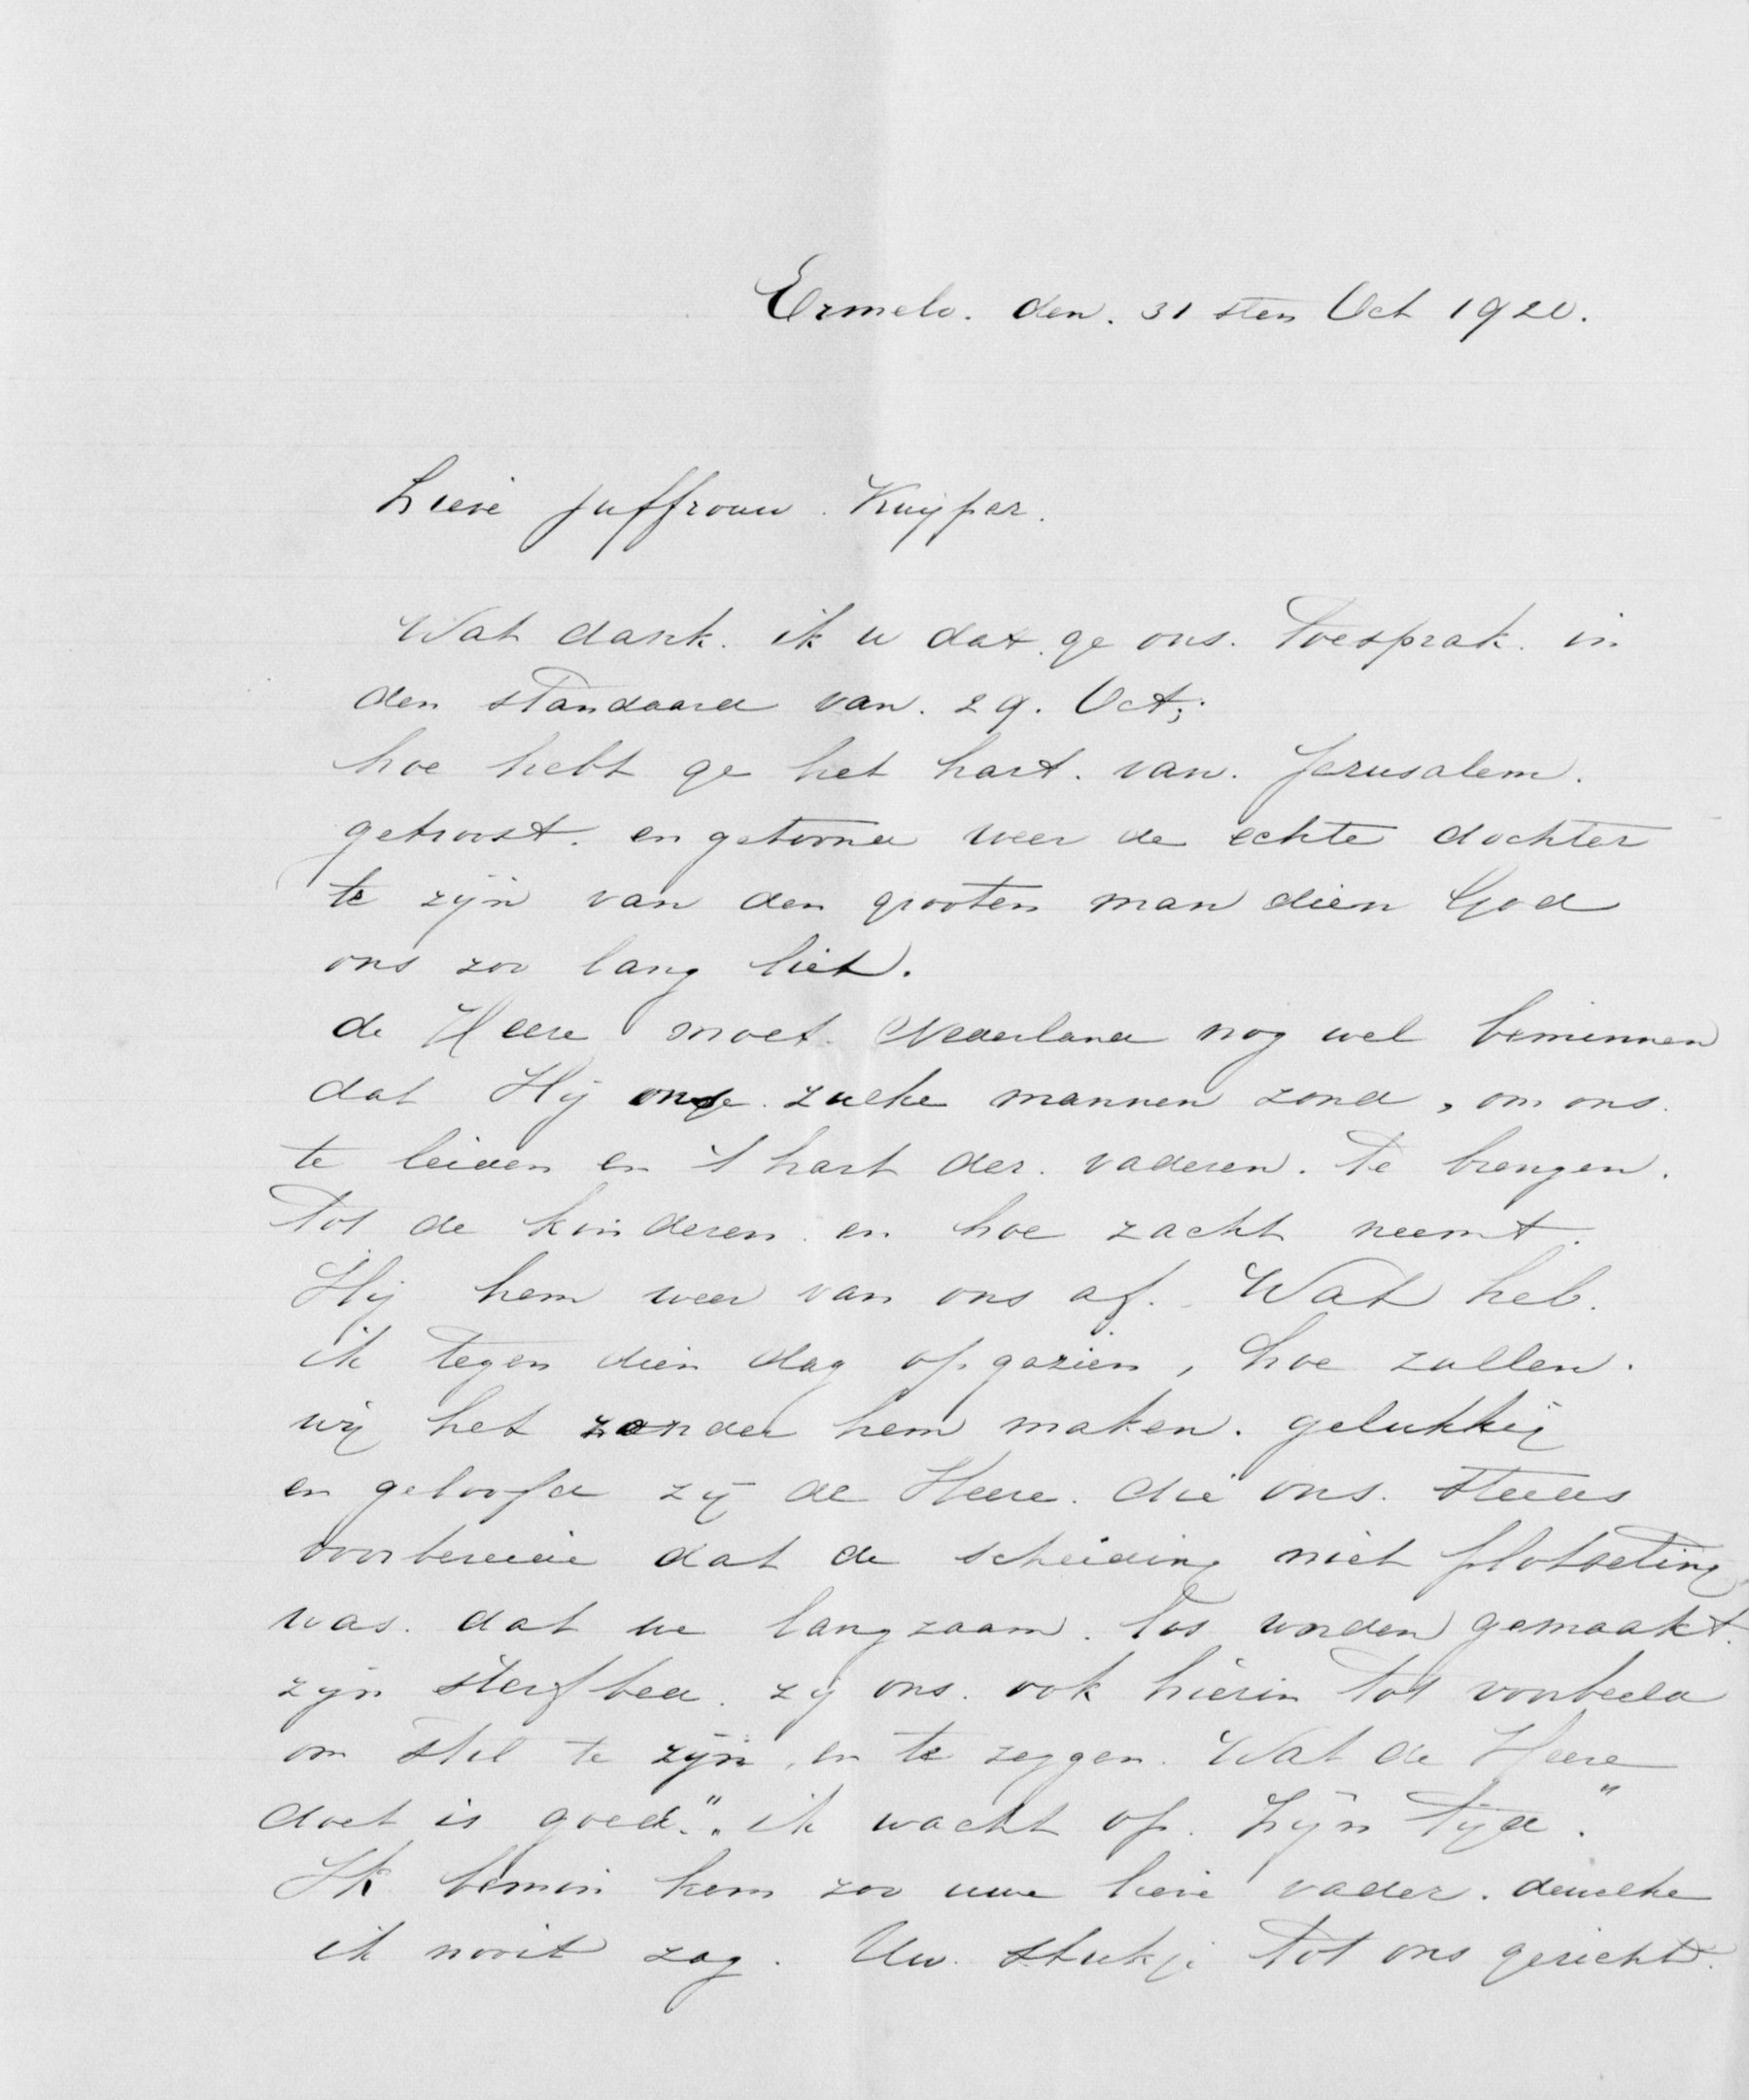 Ermelo. den. 31 sten Oct 1920.
Lieve Juffrouw. Kuyper.
Wat dank. ik u dat. ge ons. toesprak. in
den standaard van. 29. Oct;
hoe hebt ge het hart. van. Jerusalem.
getroost. en getoond weer de echte dochter
te zijn van den grooten man dien God
ons zoo lang liet.
de Heere moet. Nederland nog wel beminnen
dat Hij onse. zulke mannen zond, om ons.
te leiden en 't hart der. vaderen. te brengen.
tot de kinderen. en hoe zacht neemt.
Hij hem weer van ons af. Wat heb.
ik tegen dien dag opgezien, hoe zullen.
wij het zonder hem maken. gelukkig
en geloofd zij de Heere. die ons. steeds
voorbereide dat de scheiding niet plotseling
was. dat we langzaam. los worden gemaakt.
zijn sterfbed. zij ons. ook hierin tot voorbeeld
om stil te zijn, en te zeggen. Wat de Heere
doet is goed." „ik wacht op. Zijn tijd".
Ik bemin hem zoo uwe lieve vader. denwelke
ik nooit zag. Uw. stukje tot ons gericht.